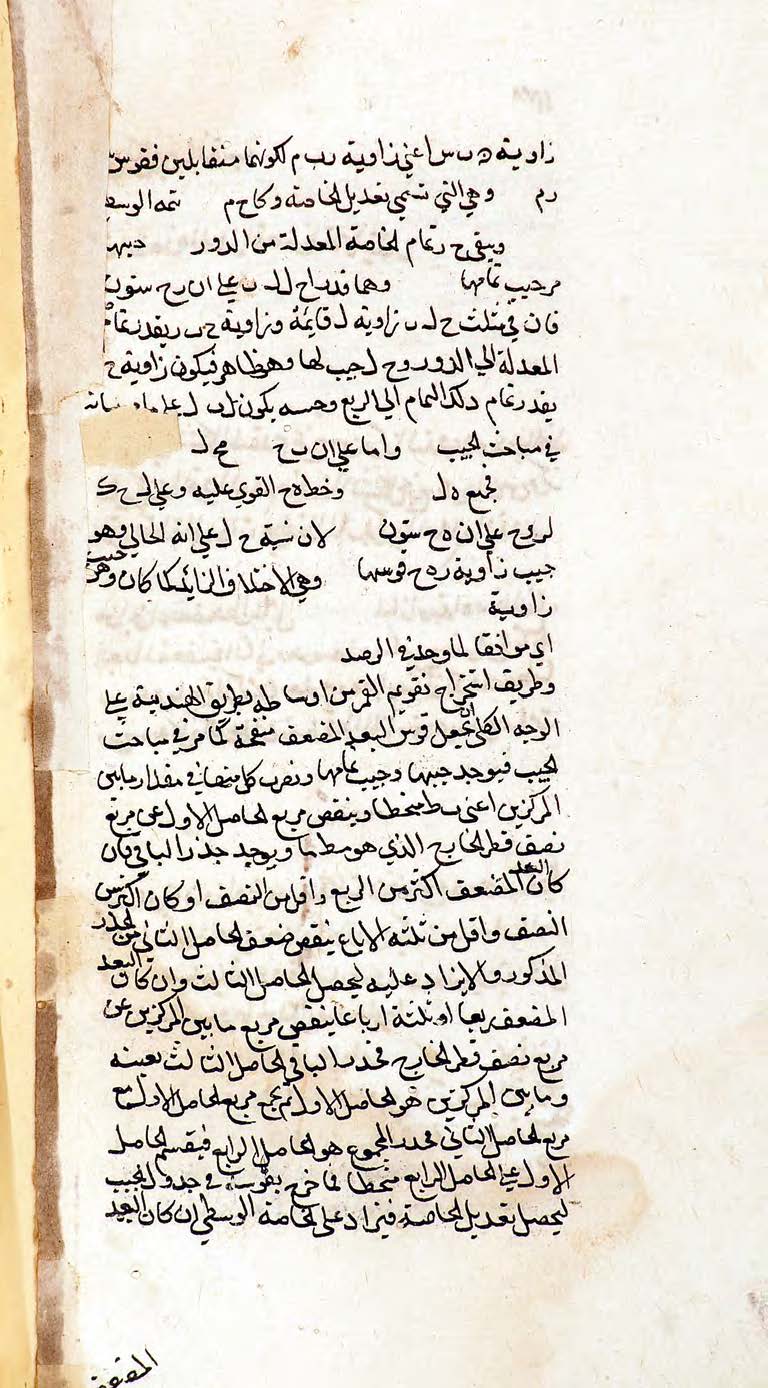 زاوية ه ب س اعني زاوية ب م لكونهما متقابلين فقوس
رم وهي التي تسمى تعديل الخاصة وكان ح م تتمه الوسطى
ويبقى ح ر تمام الخاصة المعدلة من الدور جيبها
مر جيب تمامها وهما قدرا ح ل ل ب على ان ب ح ستون
فان في مثلث ح ل ب زاوية ل قايمة وزاوية ح ب ر بقدر تمام
المعدلة الى الدور و ح ل جيب لها وهو ظاهر فيكون زاوية ح
بقدر تمام ذلك التمام الى الربع وجيبه يكون ل ب على ما
في مباحث الجيب واما على ان ب ح مح ل
فجميع ه ل وخط ه ح القوي عليه وعلى ل ح ك
لر و ح على ان ه ح ستون لان نسبة ح ل على انه الحالي وهو
جيب زاوية ر ه ح قوسها وهي الاختلاف الزايد كما كان وهو جيب
زاوية
اي موافقا لما وجد في الرصد
وطريق استخراج تقويم القمر من اوساطه بطريق الهندسة على
الوجه الكلي ان نجعل قوس البعد المضعف منقحة كما مر في مباحث
الجيب فيوجد جيبها وجيب تمامها ونضرب كل منهما في مقدار ما بين
المركزين اعني ب ط منحطا وينقص مربع الحاصل الاول عن مربع
نصف قطر الخارج الذي هو مط ما ويوجد جذر الباقي فان
كان البعد المضعف اكثر من الربع واقل من النصف او كان اكثر من
النصف واقل من ثلثة الارباع ينقص ضعف الحاصل الثاني من الجذر
المذكور والا يزاد عليه ليحصل الحاصل الثالث وان كان البعد
المضعف ربعا او ثلثة ارباعا ينقص مربع ما بين المركزين عن
مربع نصف قطر الخارج فجذر الباقي الحاصل الثالث بعينه
وما بين المركزين هو الحاصل الاول ثم نجمع مربع الحاصل الاول مع
مربع الحاصل الثاني فجذر المجموع هو الحاصل الرابع فيقسم الحاصل
الاول على الحاصل الرابع منحطا فما خرج يقوس في جدول الجيب
ليحصل تعديل الخاصة فيزاد على الخاصة الوسطى ان كان البعد
المضعف